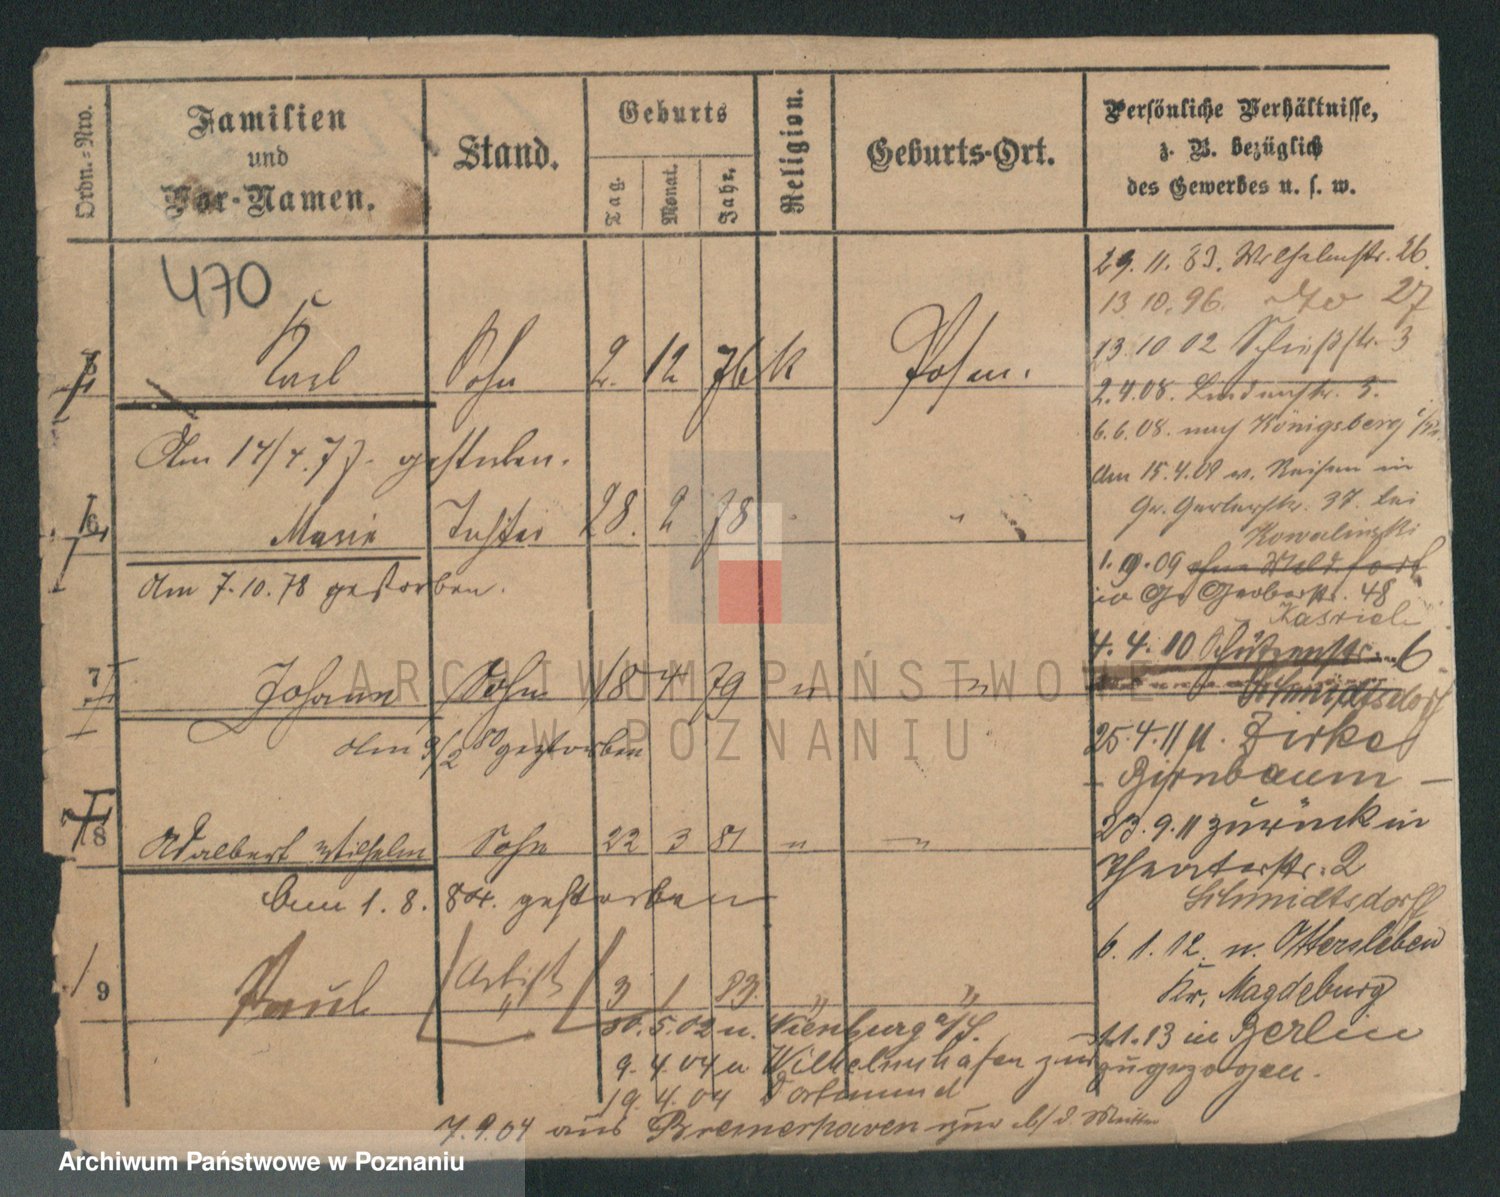 Ordn.=Nro.
Familien
und
Vor-Namen.
Stand.
Geburts
Tag.
Monat.
Jahr.
Religion.
Geburts-Ort.
Persönliche Verhältnisse,
z. B. bezüglich
des Gewerbes u. s. w.
470
5
Karl Sohn 2. 12 76 K Posen.
Am 17/4.77. gestorben.
6
Marie Tochter 28. 2 78 " "
Am 7.10.78 gestorben.
7
Johann Sohn 18 4 79 " "
Am 9/2 80 gestorben
8
Adalbert Wilhelm Sohn 22 3 81 " "
Am 1. 8. 84. gestorben
9
Paul Artist 3 1 83. " "
30.5.02 n. Nienburg a/S.
9.4.04 n Wilhelmshafen zur
19.4.04 Dortmund
7.9.04 aus Bremerhaven zur Mutter
29.11.83. Wilhelmstr. 26.
13.10.96. do 27
13.10 02 Schießstr. 3
2.4.08. Lindenstr. 3.
6.6.08. nach Königsberg
Am 15.4.09 v. Reisen in
Gr. Gerberstr. 37. bei
Kowalinski
1.9.09 ohne Meld. fort
in Gr Gerberstr. 48
4.4.10 Schützenstr. 6
Schmidtsdorf
25.4.11 n. Zirke
- Birnbaum -
23.9.11 zurück in
Theaterstr. 2
Schmidtsdorff
6.1.12. n. Ottersleben
Kr. Magdeburg
1.1.13 in Berlin
zugezogen.
ARCHIWUM PAŃSTWOWE
W POZNANIU
Archiwum Państwowe w Poznaniu